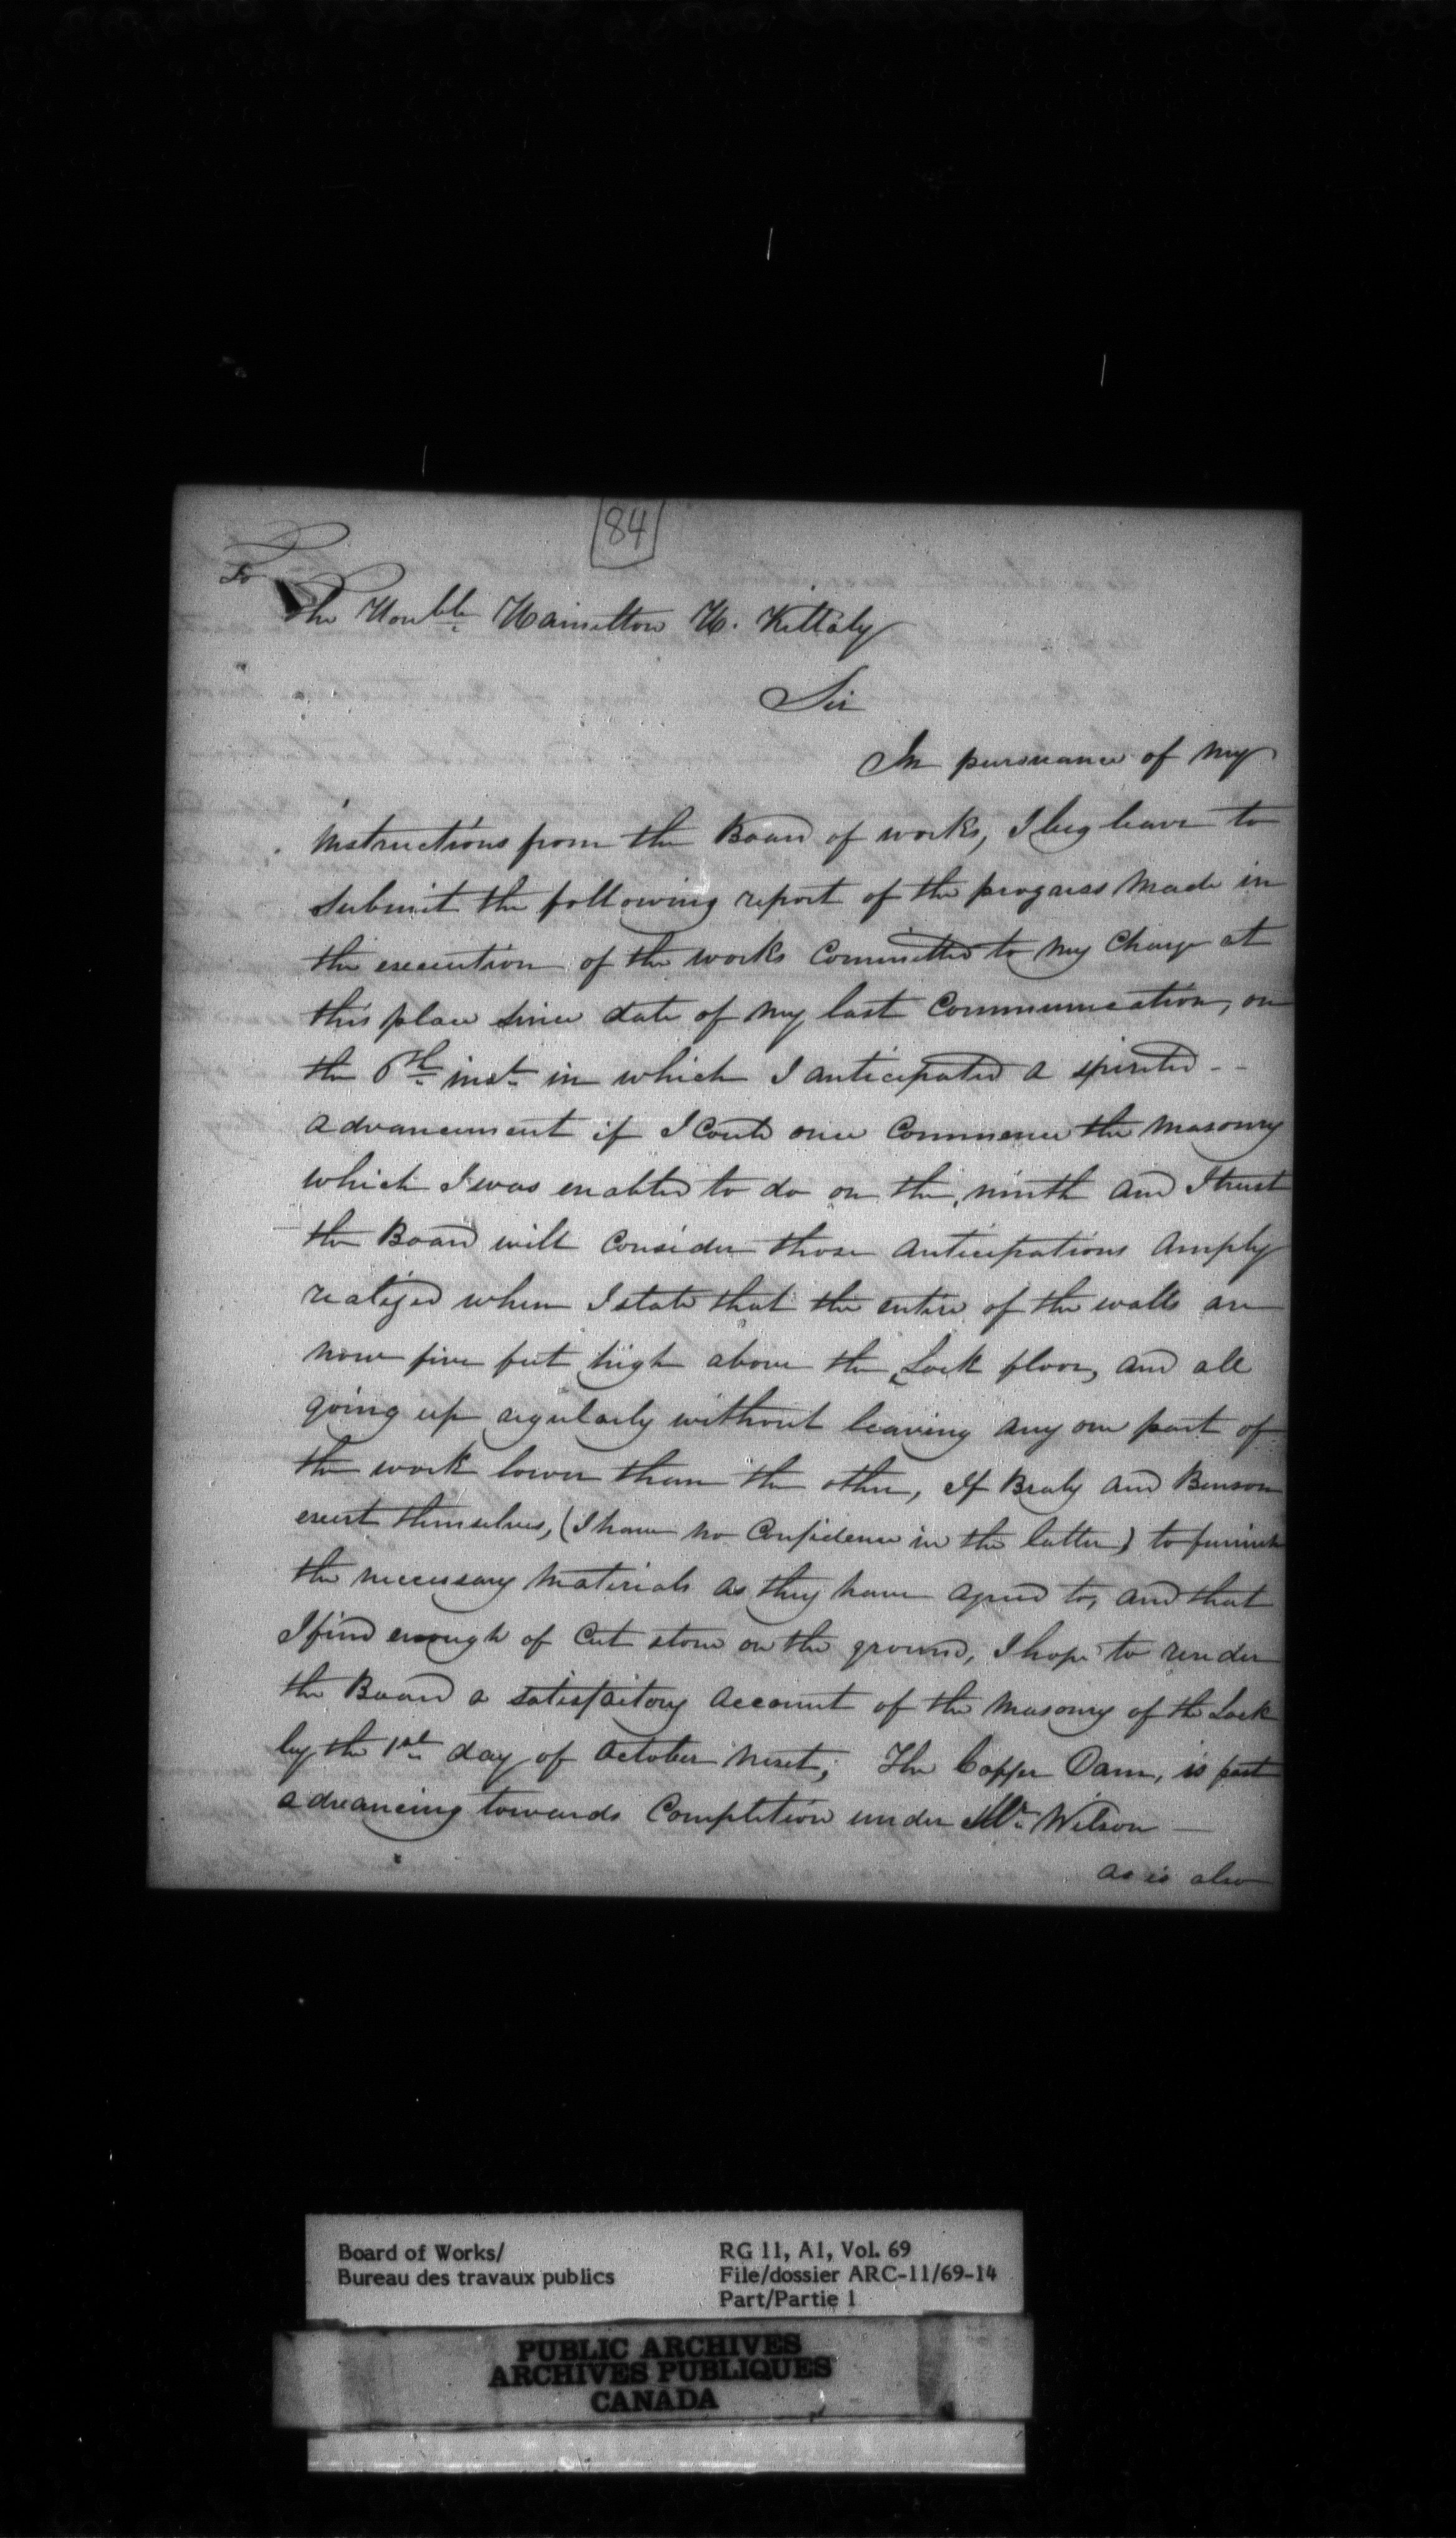 84
To
The Honble Hamilton H. Killaly
Sir
In pursuance of my
instructions from the Board of works, I beg leave to
submit the following report of the progress made in
the execution of the works committed to my charge at
this place since date of my last communication, on
the 6th inst. in which I anticipated a spirited - -
advancement if I could once commence the masonry
which I was enabled to do on the ninth and I trust
the Board will consider those anticipations amply
realized when I state that the entire of the walls are
now five feet high above the Lock floor, and all
going up regularly without leaving any one part of
the work lower than the other, If Braly and Benson
exert themselves, (I have no confidence in the latter) to furnish
the necessary materials as they have agreed to, and that
I find enough of cut stone on the ground, I hope to render
the Board a satisfactory account of the masonry of the Lock
by the 1st day of October next; The Coffer Dam, is fast
advancing towards completion under Mr. Wilson —
as is also
Board of Works/
Bureau des travaux publics
RG 11, A1, Vol. 69
File/dossier ARC-11/69-14
Part/Partie 1
PUBLIC ARCHIVES
ARCHIVES PUBLIQUES
CANADA